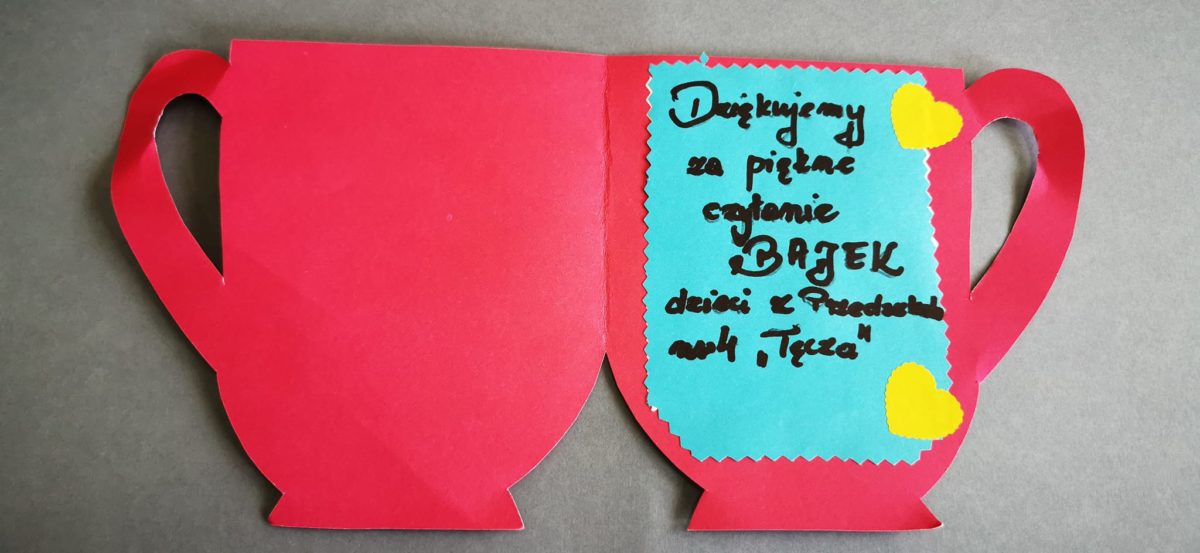 Dziękujemy
za piękne
czytanie
BAJEK
dzieci z Przedszkola
nr 4 „Tęcza"